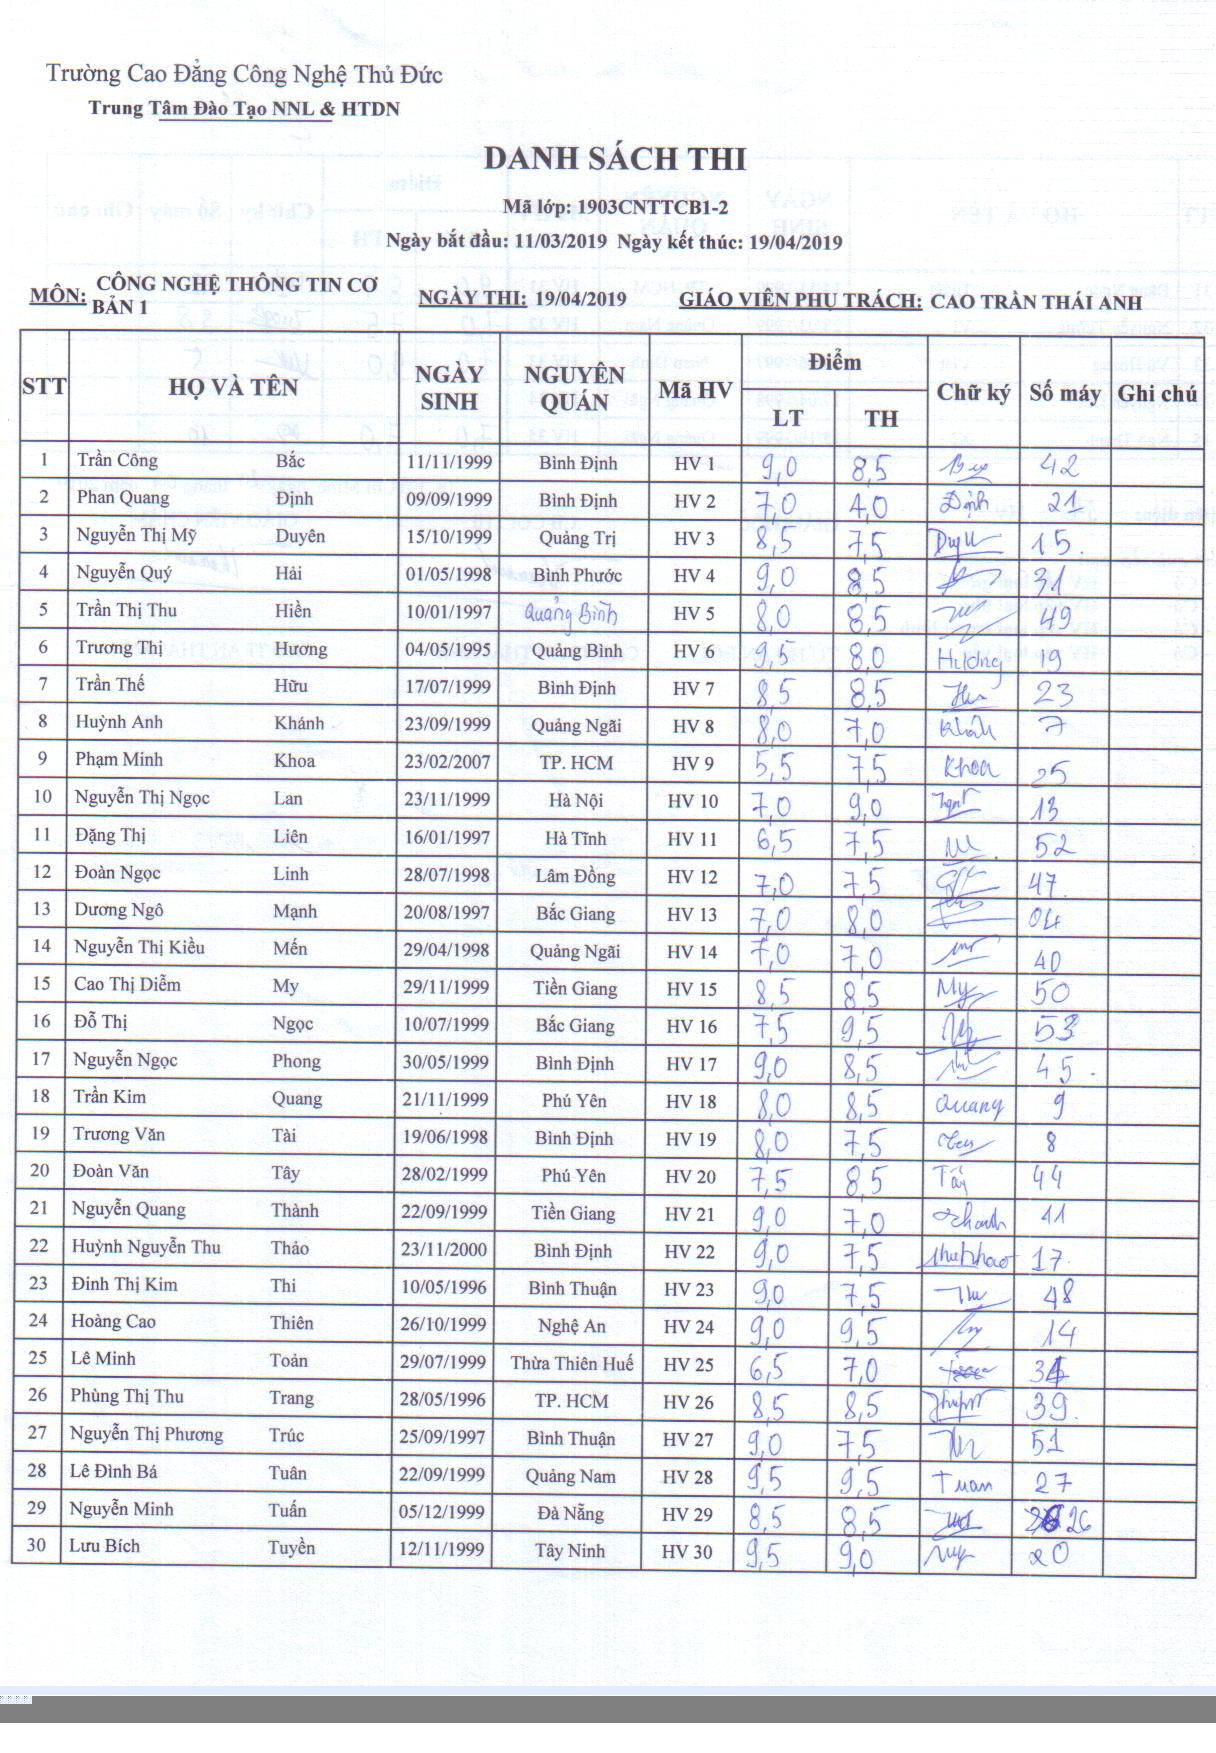 Trường Cao Đẳng Công Nghệ Thủ Đức
Trung Tâm Đào Tạo NNL & HTDN
DANH SÁCH THI
Mã lớp: 1903CNTTCB1-2
Ngày bắt đầu: 11/03/2019 Ngày kết thúc: 19/04/2019
MÔN: CÔNG NGHỆ THÔNG TIN CƠ BẢN 1 NGÀY THI: 19/04/2019 GIÁO VIÊN PHỤ TRÁCH: CAO TRẦN THÁI ANH
STT HỌ VÀ TÊN NGÀY SINH NGUYÊN QUÁN Mã HV Điểm LT TH Chữ ký Số máy Ghi chú
1 Trần Công Bắc 11/11/1999 Bình Định HV 1 9,0 8,5 42
2 Phan Quang Định 09/09/1999 Bình Định HV 2 7,0 4,0 Định 21
3 Nguyễn Thị Mỹ Duyên 15/10/1999 Quảng Trị HV 3 8,5 7,5 15.
4 Nguyễn Quý Hải 01/05/1998 Bình Phước HV 4 9,0 8,5 31
5 Trần Thị Thu Hiền 10/01/1997 Quảng Bình HV 5 8,0 8,5 49
6 Trương Thị Hương 04/05/1995 Quảng Bình HV 6 9,5 8,0 Hương 19
7 Trần Thế Hữu 17/07/1999 Bình Định HV 7 8,5 8,5 23
8 Huỳnh Anh Khánh 23/09/1999 Quảng Ngãi HV 8 8,0 7,0 7
9 Phạm Minh Khoa 23/02/2007 TP. HCM HV 9 5,5 7,5 Khoa 25
10 Nguyễn Thị Ngọc Lan 23/11/1999 Hà Nội HV 10 7,0 9,0 13
11 Đặng Thị Liên 16/01/1997 Hà Tĩnh HV 11 6,5 7,5 52
12 Đoàn Ngọc Linh 28/07/1998 Lâm Đồng HV 12 7,0 7,5 47.
13 Dương Ngô Mạnh 20/08/1997 Bắc Giang HV 13 7,0 8,0 04
14 Nguyễn Thị Kiều Mến 29/04/1998 Quảng Ngãi HV 14 7,0 7,0 40
15 Cao Thị Diễm My 29/11/1999 Tiền Giang HV 15 8,5 8,5 My 50
16 Đỗ Thị Ngọc 10/07/1999 Bắc Giang HV 16 7,5 9,5 53
17 Nguyễn Ngọc Phong 30/05/1999 Bình Định HV 17 9,0 8,5 45.
18 Trần Kim Quang 21/11/1999 Phú Yên HV 18 8,0 8,5 Quang 9
19 Trương Văn Tài 19/06/1998 Bình Định HV 19 8,0 7,5 8
20 Đoàn Văn Tây 28/02/1999 Phú Yên HV 20 7,5 8,5 Tây 44
21 Nguyễn Quang Thành 22/09/1999 Tiền Giang HV 21 9,0 7,0 11
22 Huỳnh Nguyễn Thu Thảo 23/11/2000 Bình Định HV 22 9,0 7,5 17.
23 Đinh Thị Kim Thi 10/05/1996 Bình Thuận HV 23 9,0 7,5 48
24 Hoàng Cao Thiên 26/10/1999 Nghệ An HV 24 9,0 9,5 14
25 Lê Minh Toản 29/07/1999 Thừa Thiên Huế HV 25 6,5 7,0
26 Phùng Thị Thu Trang 28/05/1996 TP. HCM HV 26 8,5 8,5 39.
27 Nguyễn Thị Phương Trúc 25/09/1997 Bình Thuận HV 27 9,0 7,5 51
28 Lê Đình Bá Tuân 22/09/1999 Quảng Nam HV 28 9,5 9,5 Tuan 27
29 Nguyễn Minh Tuấn 05/12/1999 Đà Nẵng HV 29 8,5 8,5 26
30 Lưu Bích Tuyền 12/11/1999 Tây Ninh HV 30 9,5 9,0 20